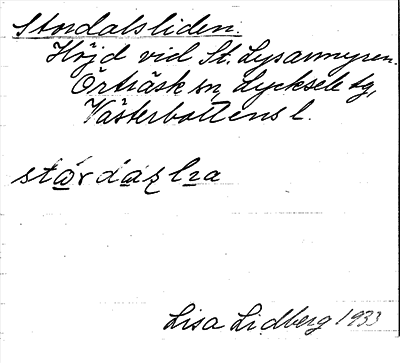 Stordalsliden.
Höjd vid St. Lysarmyren.
Örträsk sn, Lycksele tg,
Västerbottens l.
stơrdaʂlıa
Lisa Lidberg 1933